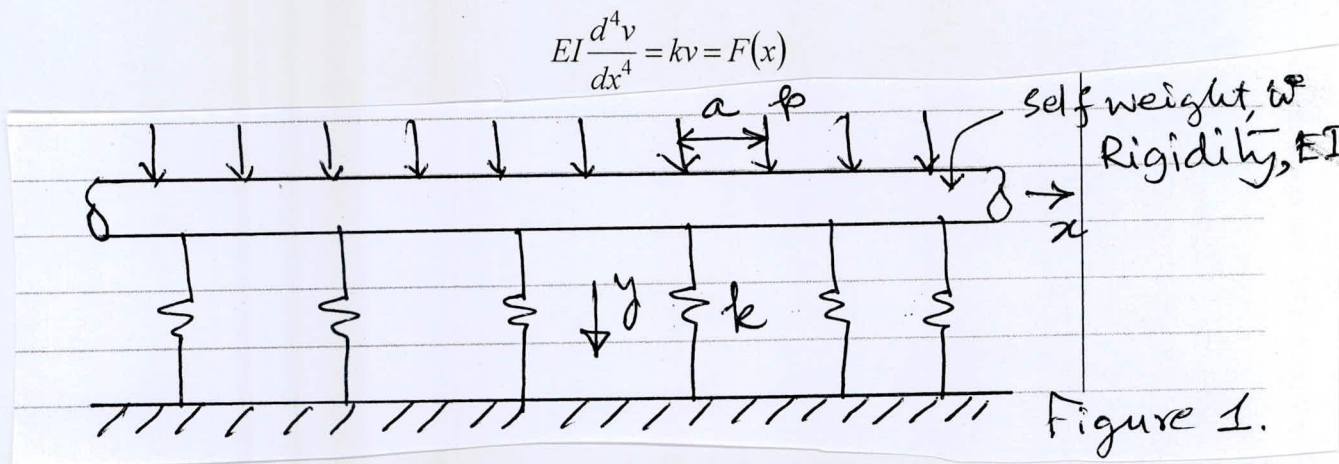 EI d⁴v/dx⁴ = kv = F(x)
a p
self weight, w
Rigidity, EI
x
y
k
Figure 1.